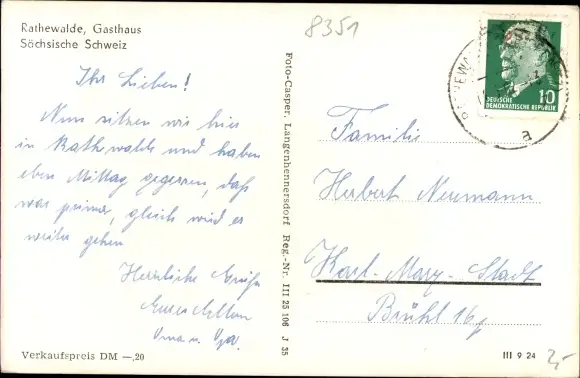 Rathewalde, Gasthaus
Sächsische Schweiz
8351
Ihr Lieben!
Nun sitzen wir hier
in Rathewalde und haben
eben Mittag gegessen, daß
war prima, gleich wird es
weiter gehen
Herzliche Grüße
Eure Alten
Oma u. Opa.
Verkaufspreis DM —,20
Foto-Casper, Langenhennersdorf Reg.-Nr. III 25 106 J 35
DEUTSCHE
DEMOKRATISCHE REPUBLIK
10
a
Familie
Herbert Neumann
Karl-Marx-Stadt
Brühl 16
III 9 24
2,-